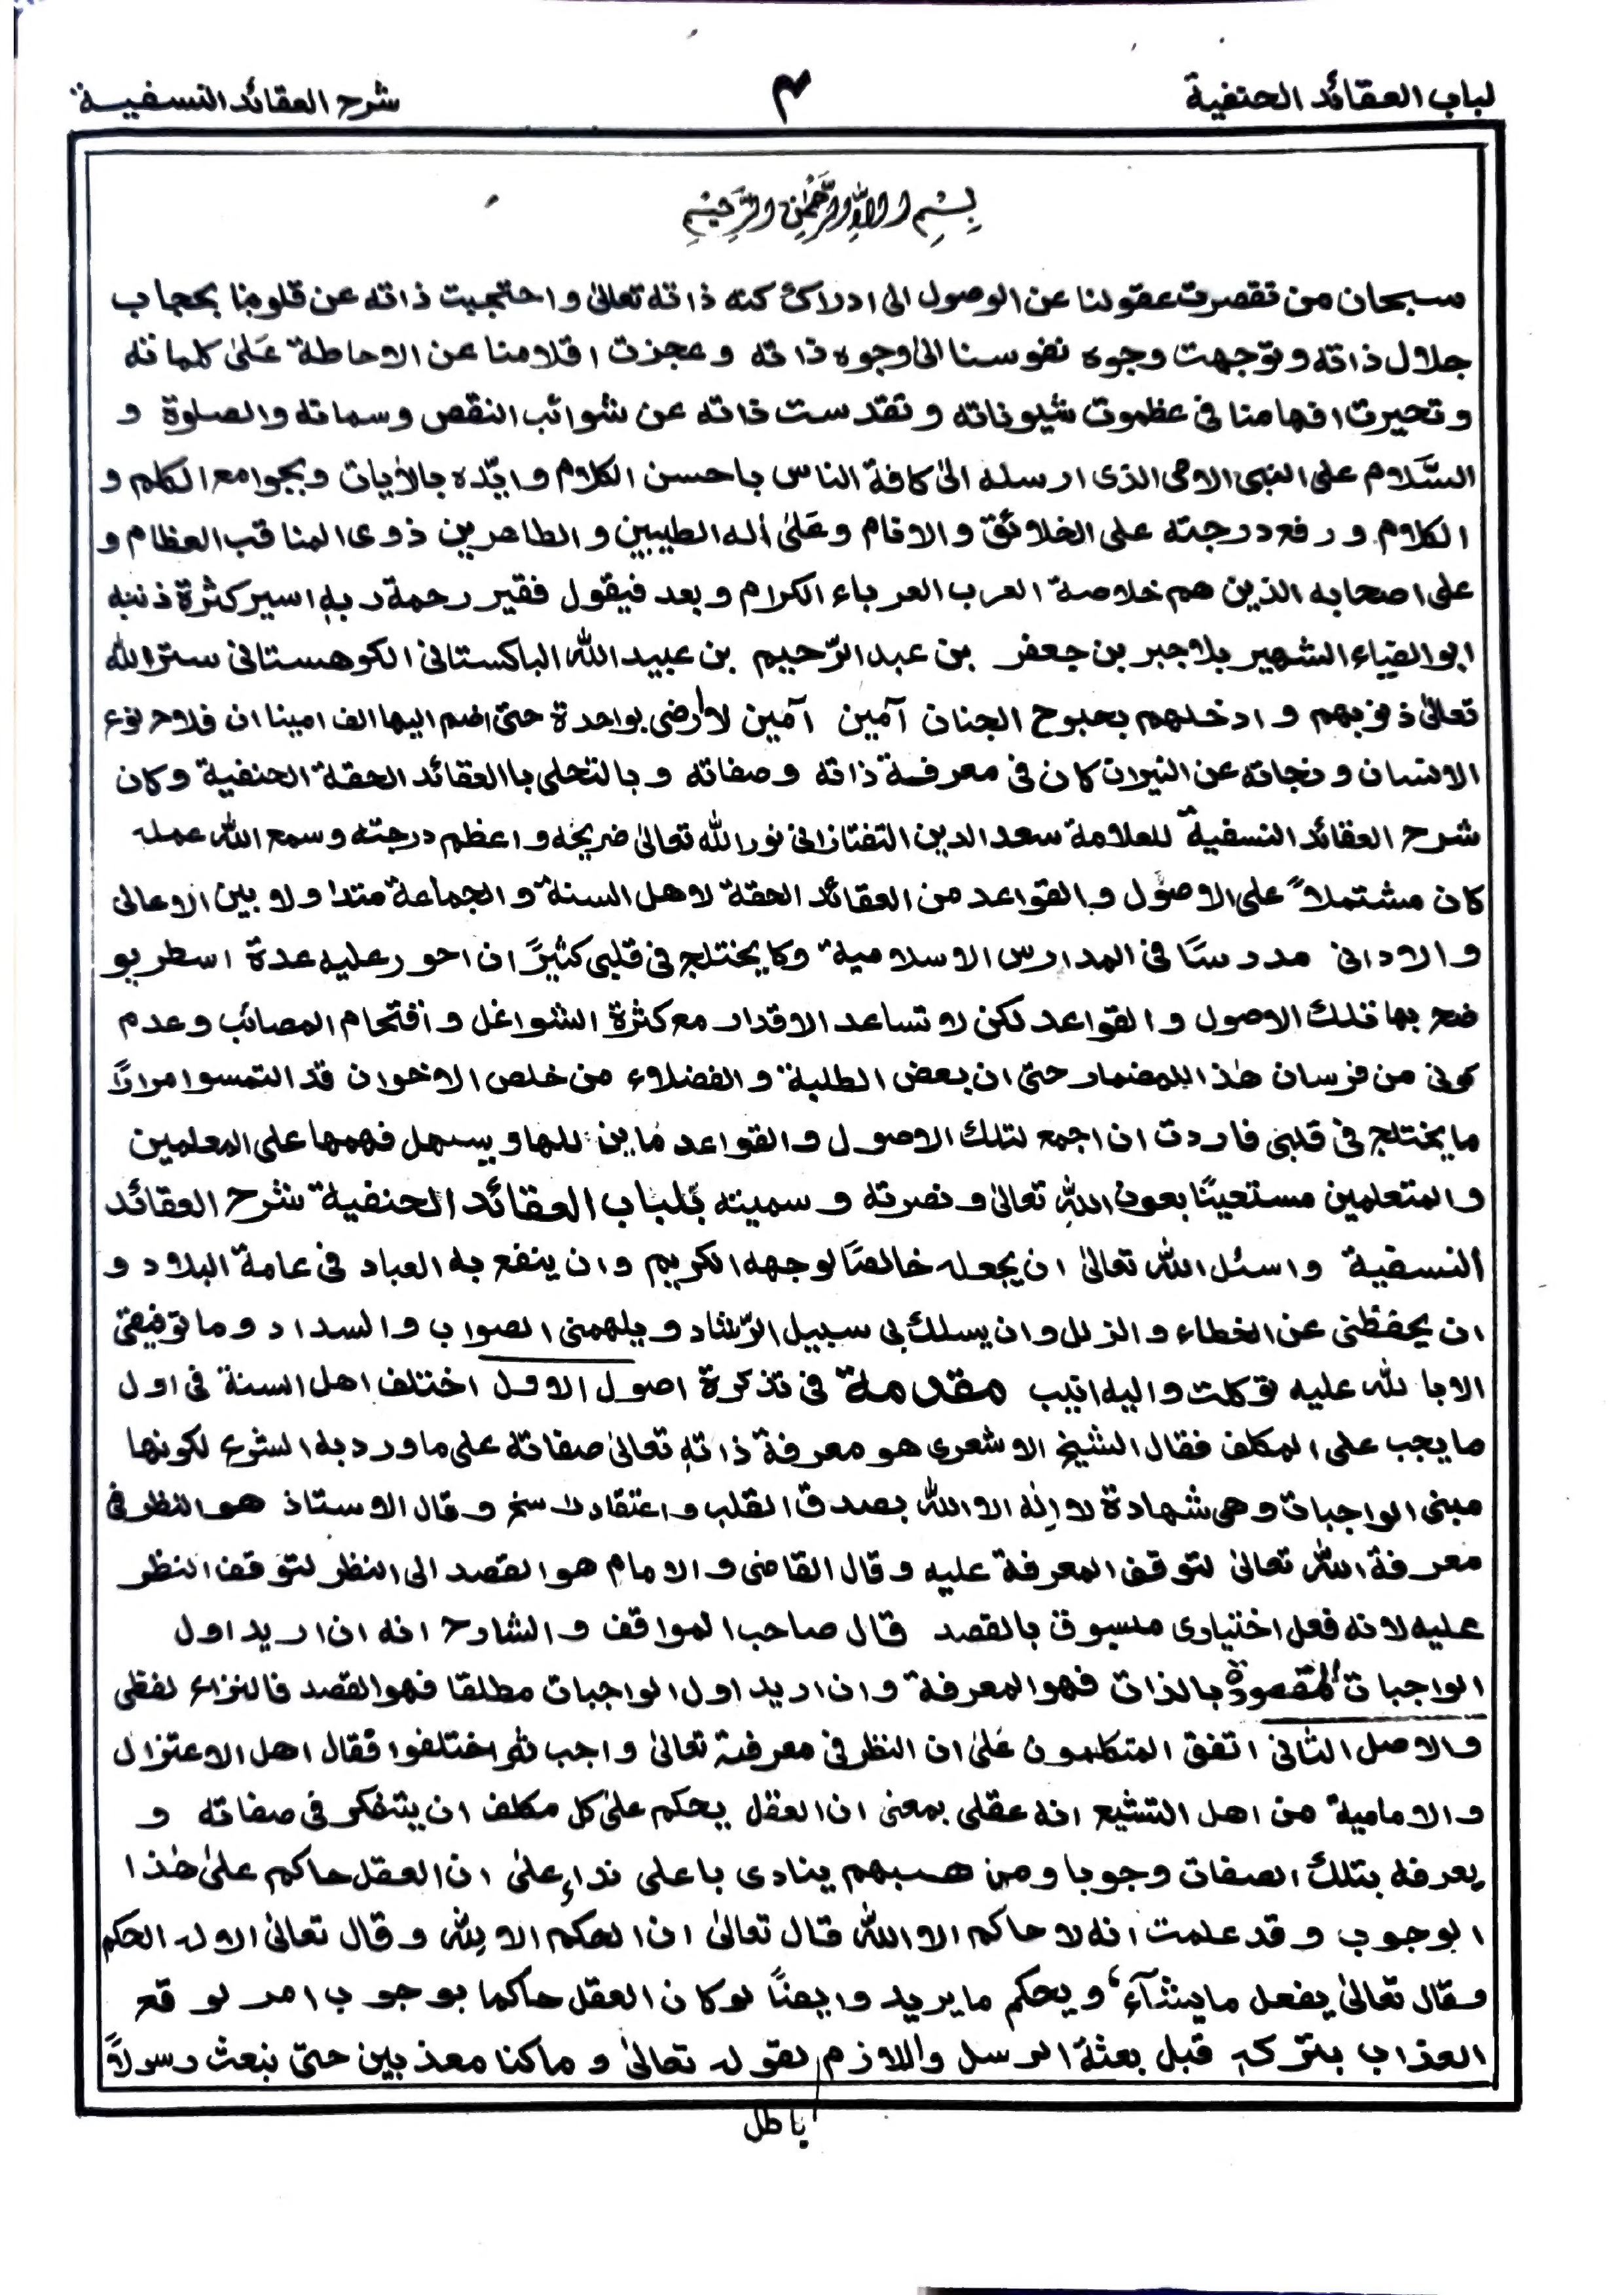 لباب العقائد الحنفية
٣
شرح العقائد النسفية
بِسْمِ اللهِ الرَّحْمٰنِ الرَّحِيْمِ
سبحان من تقصرت عقولنا عن الوصول الى ادراك كنه ذاته تعالىٰ واحتجبت ذاته عن قلوبنا بحجاب
جلال ذاته وتوجهت وجوه نفوسنا الىٰ وجوه ذاته وعجزت اقلامنا عن الاحاطة عَلىٰ كلماته
وتحيرت افهامنا فى عظموت شيوناته وتقدست ذاته عن شوائب النقص وسماته والصلوة و
السَّلام على النبى الامى الذى ارسله الىٰ كافة الناس باحسن الكلام وايّده بالأيات وبجوامع الكلم و
الكلام ورفع درجته على الخلائق والانام وعَلىٰ أله الطيبين والطاهرين ذوى المناقب العظام و
على اصحابه الذين هم خلاصة العرب العرباء الكرام وبعد فيقول فقير رحمة ربهٖ اسير كثرة ذنبه
ابوالضياء الشهير بلاجبر بن جعفر بن عبد الرّحيم بن عبيد الله الباكستانى الكوهستانى ستر الله
تعالىٰ ذنوبهم وادخلهم بحبوح الجنان آمين آمين لا ارضى بواحدة حتى اضم اليها الف امينا ان فلاح نوع
الانسان ونجاته عن النيران كان فى معرفة ذاته وصفاته وبالتحلى باالعقائد الحقة الحنفية وكان
شرح العقائد النسفية للعلامة سعد الدين التفتازانى نور الله تعالىٰ ضريحه واعظم درجته وسمع الله عمله
كان مشتملاً على الاصول والقواعد من العقائد الحقة لاهل السنة والجماعة متداولا بين الاعالى
والادانى مدرسًا فى المدارس الاسلامية وكا يختلج فى قلبى كثيرًا ان احور عليه عدة اسطر يو
ضح بها تلك الاصول والقواعد لكن لا تساعد الاقدار مع كثرة الشواغل وأقتحام المصائب وعدم
كونى من فرسان هٰذا المضمار حتى ان بعض الطلبة والفضلاء من خلص الاخوان قد التمسوا مرارًا
ما يختلج فى قلبى فاردت ان اجمع لتلك الاصول والقواعد ما ين للها ويسهل فهمها على المعلمين
والمتعلمين مستعينًا بعون اللهِ تعالىٰ ونصرته وسميته بلباب العقائد الحنفية شرح العقائد
النسفية واسئل الله تعالىٰ ان يجعله خالصًا لوجهه الكريم وان ينفع به العباد فى عامة البلاد و
ان يحفظنى عن الخطاء والزلل وان يسلك بى سبيل الرّشاد ويلهمنى الصواب والسداد وما توفيقى
الا بالله عليه توكلت واليه انيب مقدمة فى تذكرة اصول الاول اختلف اهل السنة فى اول
ما يجب على المكلف فقال الشيخ الاشعرى هو معرفة ذاتهٖ تعالىٰ صفاته على ما ورد به الشرع لكونها
مبنى الواجبات وهى شهادة لا اِلٰه الا الله بصدق القلب واعتقاد راسخ وقال الاستاذ هو النظر فى
معرفة الله تعالىٰ لتوقف المعرفة عليه وقال القاضى والامام هو القصد الى النظر لتوقف النظر
عليه لانه فعل اختيارى مسبوق بالقصد قال صاحب المواقف والشارح انه ان اريد اول
الواجبات المقصودة بالذات فهو المعرفة وان اريد اول الواجبات مطلقا فهو القصد فالنزاع لفظى
والاصل الثانى اتفق المتكلمون عَلىٰ ان النظر فى معرفة تعالىٰ واجب ثم اختلفوا فقال اهل الاعتزال
والامامية من اهل التشيع انه عقلى بمعنى ان العقل يحكم علىٰ كل مكلف ان يتفكر فى صفاته و
يعرفه بتلك الصفات وجوبا ومن هبهم ينادى باعلى نداءٍ علىٰ ان العقل حاكم علىٰ هٰذا
الوجوب وقد علمت انه لا حاكم الا الله قال تعالىٰ ان الحكم الا لِلّٰه وقال تعالىٰ الا له الحكم
وقال تعالىٰ يفعل ما يشآء ويحكم ما يريد وايضًا لو كان العقل حاكما بوجوب امر لوقع
العذاب بتركهٖ قبل بعثة الرسل واللازم لقوله تعالىٰ وما كنا معذبين حتى نبعث رسولاً
باطل